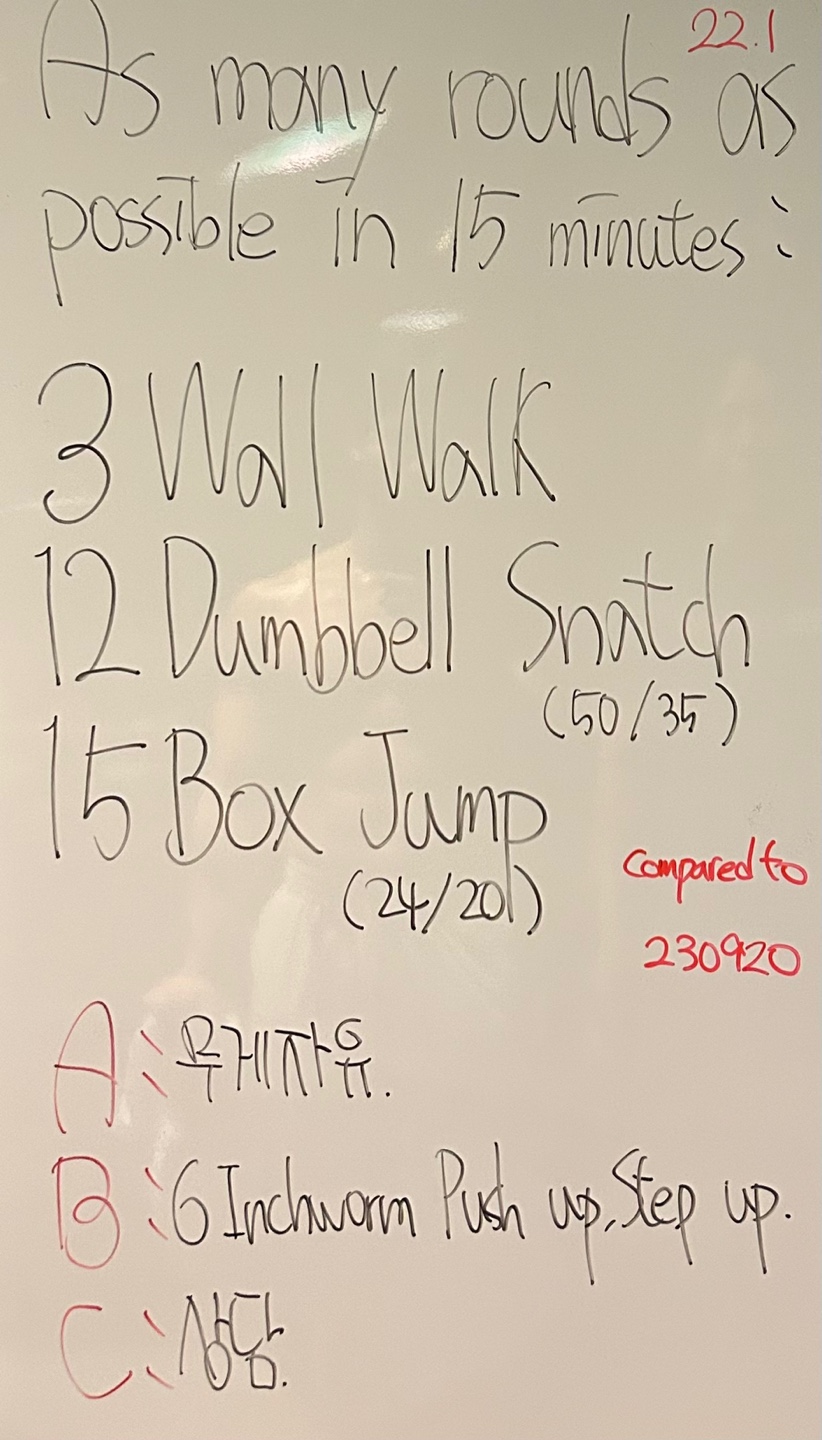 22.1
As many rounds as
possible in 15 minutes:
3 Wall Walk
12 Dumbbell Snatch
(50/35)
15 Box Jump
(24/20)
Compared to
230920
A: 무게자유.
B: 6 Inchworm Push up, Step up.
C: 상담.